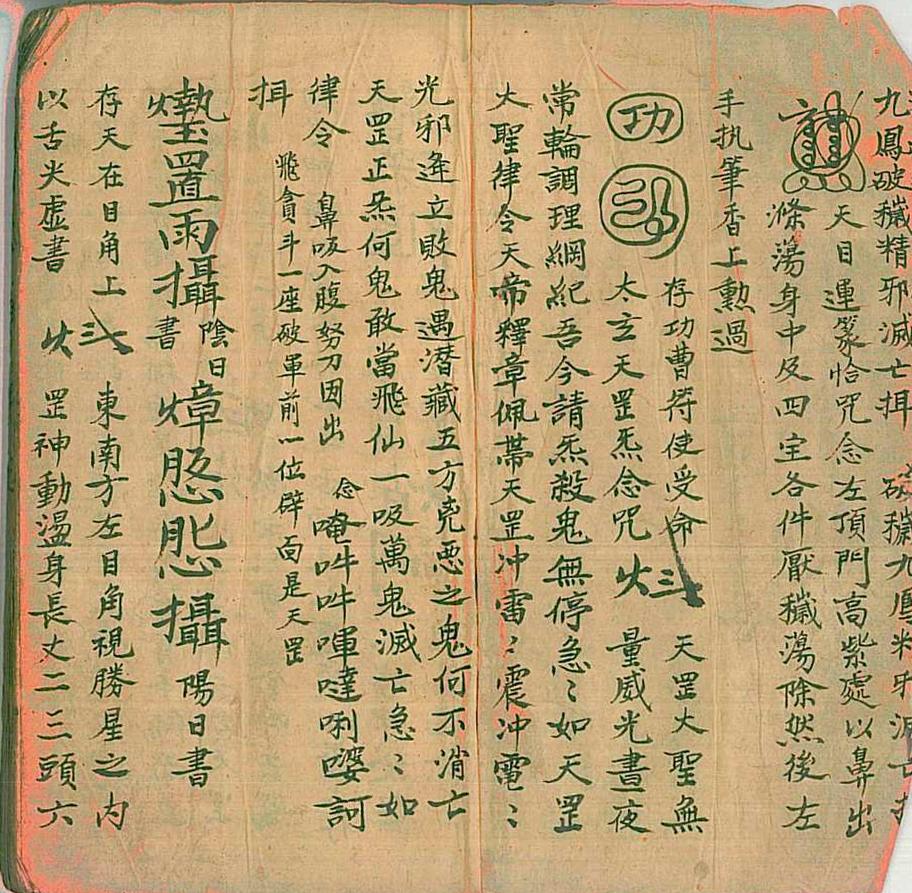 九鳳破穢精邪滅亡挕 破穢九鳳精邪滅亡
天目運篆恰咒念左頂門高紫處以鼻出
滌蕩身中及四宝各件厭穢蕩除然後左
手执筆香上勲過
功 存功曹符使受命 天罡大聖無
太玄天罡炁念咒 量威光晝夜
常輪調理綱紀吾今請炁殺鬼無停急〻如天罡
大聖律令天帝釋章佩帶天罡冲雷〻震冲電〻
光邪逢立敗鬼遇潜藏五方兇惡之鬼何不消亡
天罡正炁何鬼敢當飛仙一吸萬鬼滅亡急〻如
律令 鼻吸入腹努刀因出 念唵吽吽㖶噠唎㗒訶
挕 飛貪斗一座破軍前一位辟面是天罡
置雨攝 陰日書 攝 陽日書
存天在目角上 東南方左目角視勝星之内
以舌尖虚書 罡神動盪身長丈二三頭六